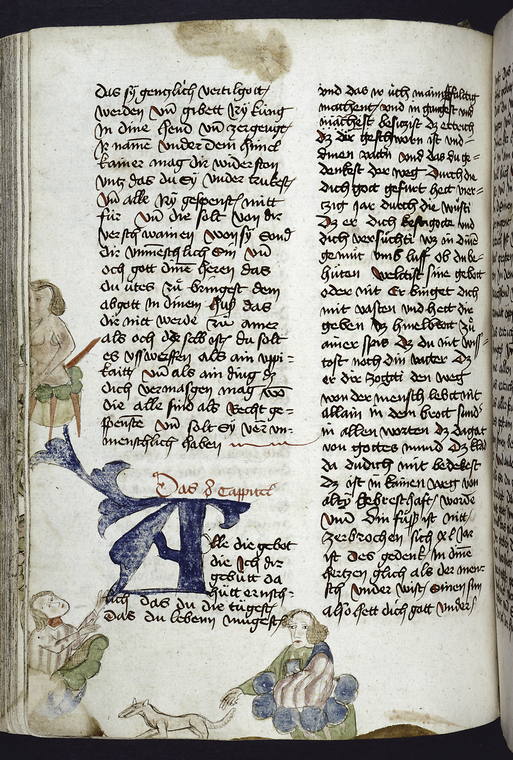 das sy gentzlich vertilgott
werden vnd gibett Iry küng
In dine hend vnd zergengt
Ir name vnder dem himel
kainer mag dir widerston
vntz das du sy vnder trukest
vnd alle Iry gespenst mitt
für vnd die solt von dir
verschwainen sy sond
dir vnmenschlich sin vnd
och gott dine heren das
du ütes zu bringest dem
abgott in dinen huß das
dir nict werde zu ainer
als och der selb ist du solt
es vsswerffen als ain vppi=
kaitt vnd als ain ding dz
dich vermasgen mag
die alle sind als recht ge=
spenste vnd solt sy ver vn=
menschlich haben
Das 8 Cappitel
Alle die gebot
die Ich dir
gebütt da
hütt ernsch=
lich das du die tügest
das du lebenn mugest
vnd das ir üch manigfaltig
machent vnd in gangest vnd
machest besitzist dz ertrich
dz der geschworn ist vnd
dinen vattn vnd das du ge=
denkest der weg durch die
dich gott gefürt hett vier=
zig jar durch die wüsti
dz er dich kestgote vnd
dich versüchti wz in dine
gemüt vmb luff ob du be=
hüten weltist sine gebott
oder nit Er binget dich
mit vasten vnd hett dir
geben dz himelbrott zu
ainer spis dz du nit wiss=
tost noch din vatter dz
er dir zogti den weg
won der mensch lebt nit
allain in dem brott sund
in allen worten dz da gat
von gottes mund dz klaid
da du dich mit bedekest
dz ist in kainen weg von
alter gebreschaft worde
vnd din füß ist nitt
zerbrochen sich xl Jar
ist des gedenk in dine
hertzen glich als der men=
sch vnder wist sinen sun
also hett dich gott vnder